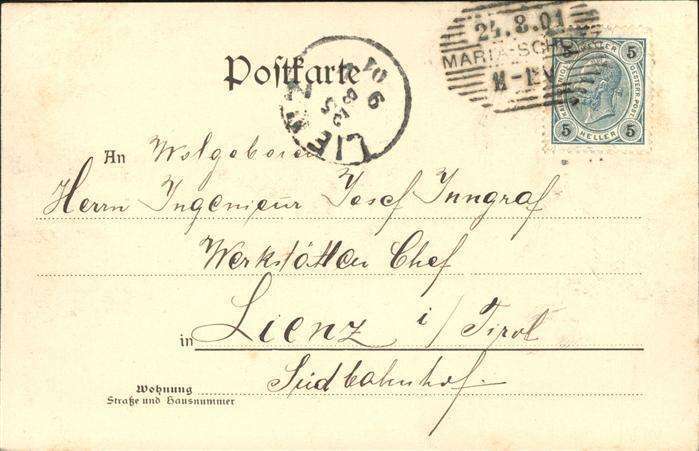 24.8.01
MARIA-SCH
Postkarte
LIENZ
25 8 01
9
5 HELLER 5
5 HELLER 5
An Wolgeboren
Herrn Ingenieur Josef Inngraf
Werkstätten Chef
in Lienz i/Tirol
Südbahnhof.
Wohnung
Straße und Hausnummer